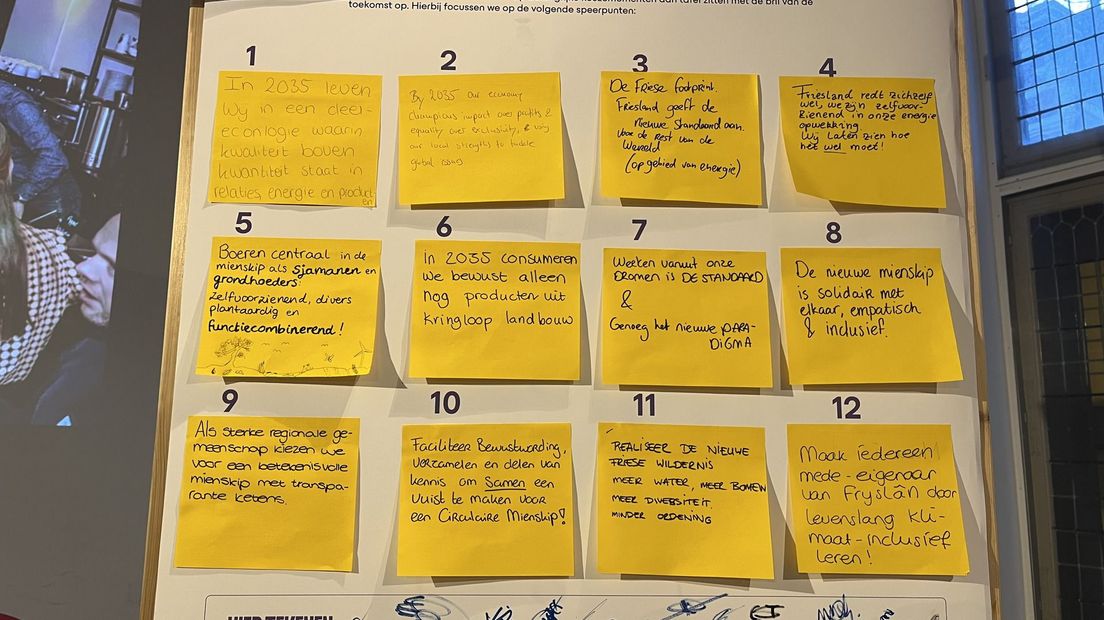 toekomst op. Hierbij focussen we op de volgende speerpunten:
1
In 2035 leven
wij in een deel-
econlogie waarin
kwaliteit boven
kwantiteit staat in
relaties, energie en product-
en
2
By 2035 our economy
champions impact over profits &
equality over exclusivity, & using
our local strengths to tackle
global issues
3
De Friese footprint.
Friesland geeft de
nieuwe Standaard aan.
voor de rest van de
Wereld
(op gebied van energie)
4
Friesland redt zichzelf
wel, we zijn zelfvoor-
zienend in onze energie
opwekking
Wij laten zien hoe
het wel moet!
5
Boeren centraal in de
mienskip als sjamanen en
grondhoeders:
zelfvoorzienend, divers
plantaardig en
functiecombinerend!
6
In 2035 consumeren
we bewust alleen
nog producten uit
kringloop landbouw
7
Werken vanuit onze
DROMEN is DE STANDAARD
&
Genoeg het nieuwe PARA-
DiGMA
8
De nieuwe mienskip
is solidair met
elkaar, empatisch
& inclusief.
9
Als sterke regionale ge-
meenschap kiezen we
voor een betekenisvolle
mienskip met transpa-
rante ketens.
10
Faciliteer Bewustwording,
verzamelen en delen van
kennis om Samen een
vuist te maken voor
een Circulaire Mienskip!
11
REALISEER DE NIEUWE
FRIESE WILDERNIS
MEER WATER, MEER BOMEN
MEER DIVERSITEIT.
MINDER ORDENING
12
Maak iedereen
mede-eigenaar
van Fryslân door
levenslang kli-
maat-inclusief
leren!
HIER TEKENEN